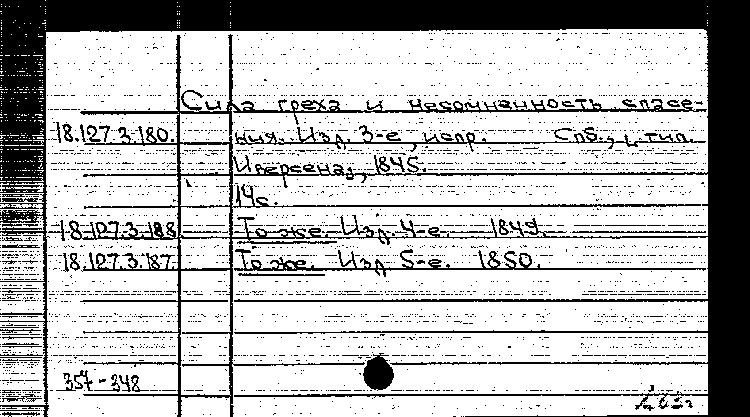 Сила греха и несомненность спасе-
18.127.3.180. ния. Изд. 3-е, испр. Спб., [тип.
Иверсена], 1845.
14с.
18.127.3.188 То же. Изд. 4-е. 1849.
18.127.3.187. То же. Изд 5-е. 1850.
357-348